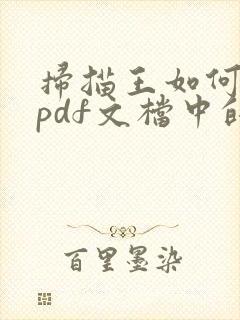 掃描王如何
pdf文檔中的
百里墨染